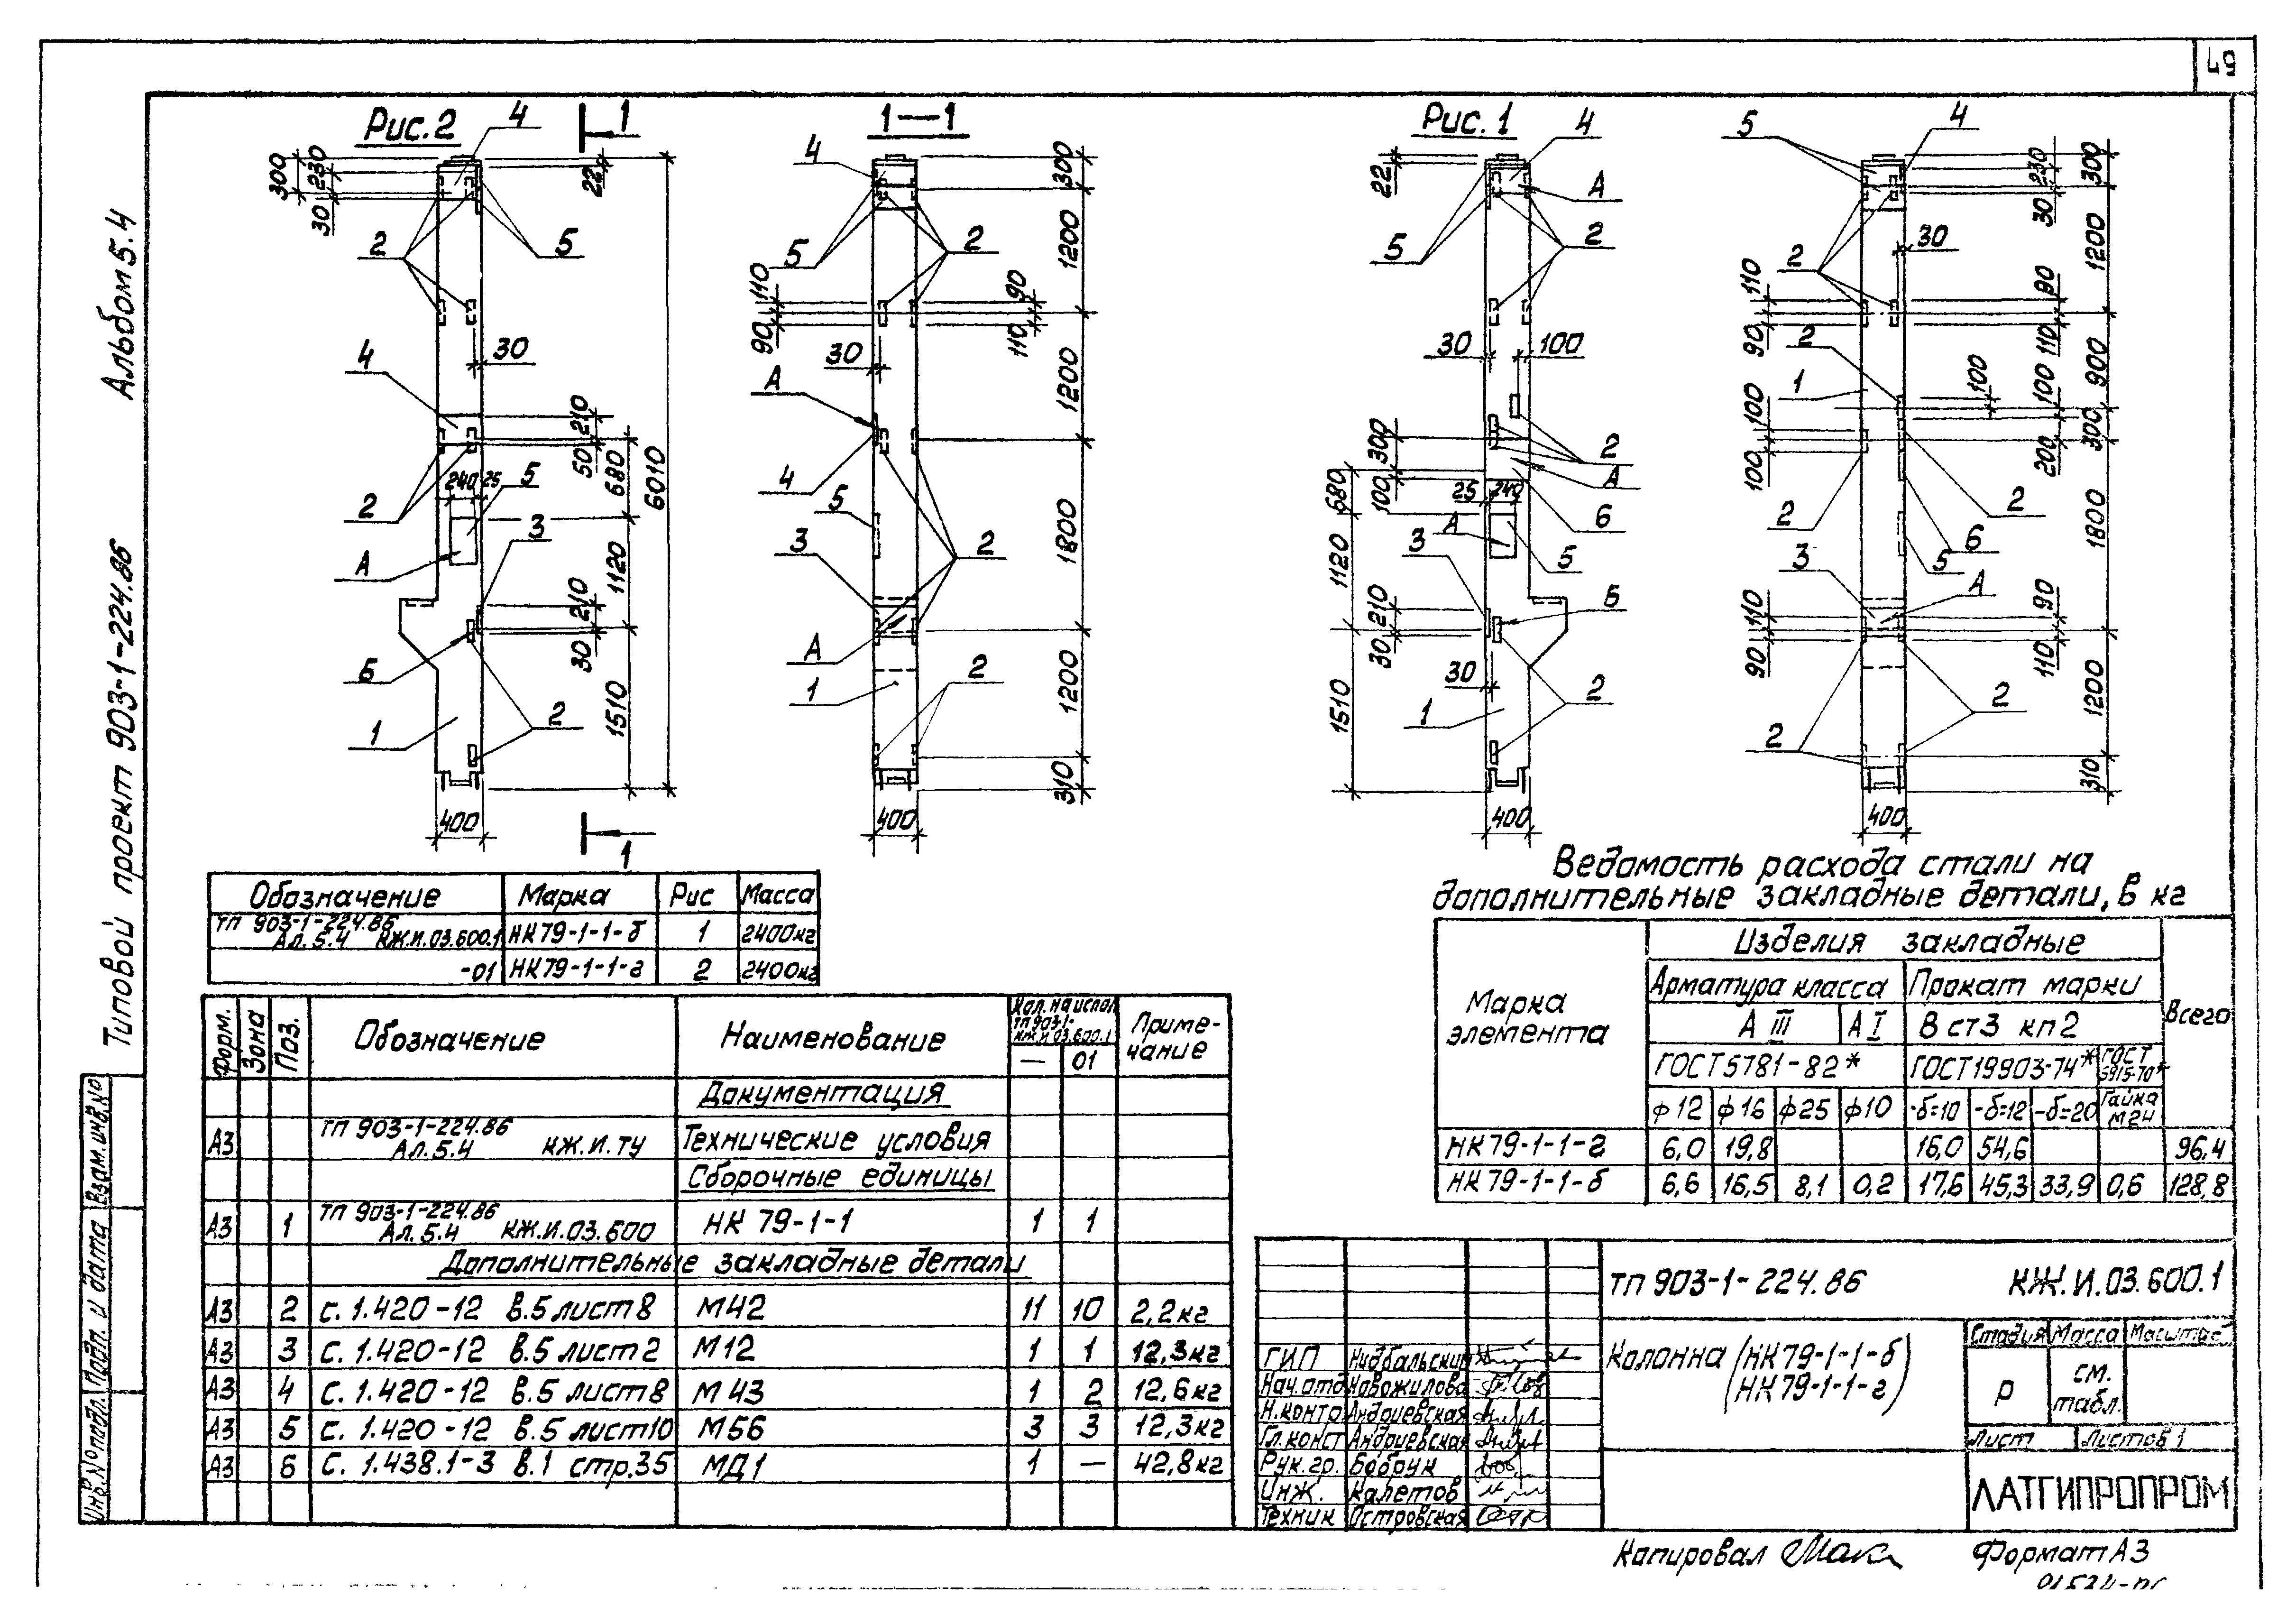 49
Альбом 5.4
Типовой проект 903-1-224.86
Взам. инв. №
Подп. и дата
Инв. № подл.
Рис. 2
1
1
4
300
230
30
22
2
5
4
30
210
50
680
6010
240
25
5
2
3
А
210
1120
30
Б
2
1
1510
400
1—1
4
5
2
110
90
90
110
30
А
4
5
3
2
А
1
2
300
1200
1200
1800
1200
310
400
Рис. 1
22
4
А
5
2
30
100
300
100
680
2
А
25
240
6
А
5
3
Б
1120
210
30
30
2
1
1510
400
5
4
230
30
300
2
30
1200
110
90
90
110
2
1
100
100
100
100
900
200
300
2
2
6
5
3
А
1800
110
90
90
110
2
2
1200
310
400
Обозначение Марка Рис Масса
ТП 903-1-224.86
Ал. 5.4 КЖ.И.03.600.1 НК79-1-1-б 1 2400кг
-01 НК79-1-1-г 2 2400кг
Форм. Зона Поз. Обозначение Наименование Кол. на испол. ТП 903-1- КЖ.И.03.600.1 Приме-
чание
— 01
Документация
А3 ТП 903-1-224.86
Ал.5.4 КЖ.И.ТУ Технические условия
Сборочные единицы
А3 1 ТП 903-1-224.86
Ал.5.4 КЖ.И.03.600 НК 79-1-1 1 1
Дополнительные закладные детали
А3 2 с. 1.420-12 в.5 лист 8 М42 11 10 2,2кг
А3 3 с. 1.420-12 в.5 лист 2 М12 1 1 12,3кг
А3 4 с. 1.420-12 в.5 лист 8 М43 1 2 12,6кг
А3 5 с. 1.420-12 в.5 лист 10 М56 3 3 12,3кг
А3 6 с. 1.438.1-3 в.1 стр.35 МД1 1 — 42,8кг
Ведомость расхода стали на
дополнительные закладные детали, в кг
Марка
элемента
Изделия закладные
Всего
Арматура класса Прокат марки
А III А I В ст3 кп2
ГОСТ 5781-82* ГОСТ 19903-74* ГОСТ 5915-70*
ф12 ф16 ф25 ф10 -б=10 -б=12 -б=20 Гайка М24
НК79-1-1-г 6,0 19,8 16,0 54,6 96,4
НК79-1-1-б 6,6 16,5 8,1 0,2 17,6 45,3 33,9 0,6 128,8
ТП 903-1-224.86 КЖ.И.03.600.1
Колонна (НК79-1-1-б
НК79-1-1-г)
Стадия Масса Масштаб
Р см.
табл.
Лист Листов 1
ЛАТГИПРОПРОМ
ГИП Нидбальский
Нач. отд Новожилова
Н.контр. Андриевская
Гл.конст Андриевская
Рук. гр. Бобрук
Инж. Калетов
Техник Островская
Копировал
Формат А3